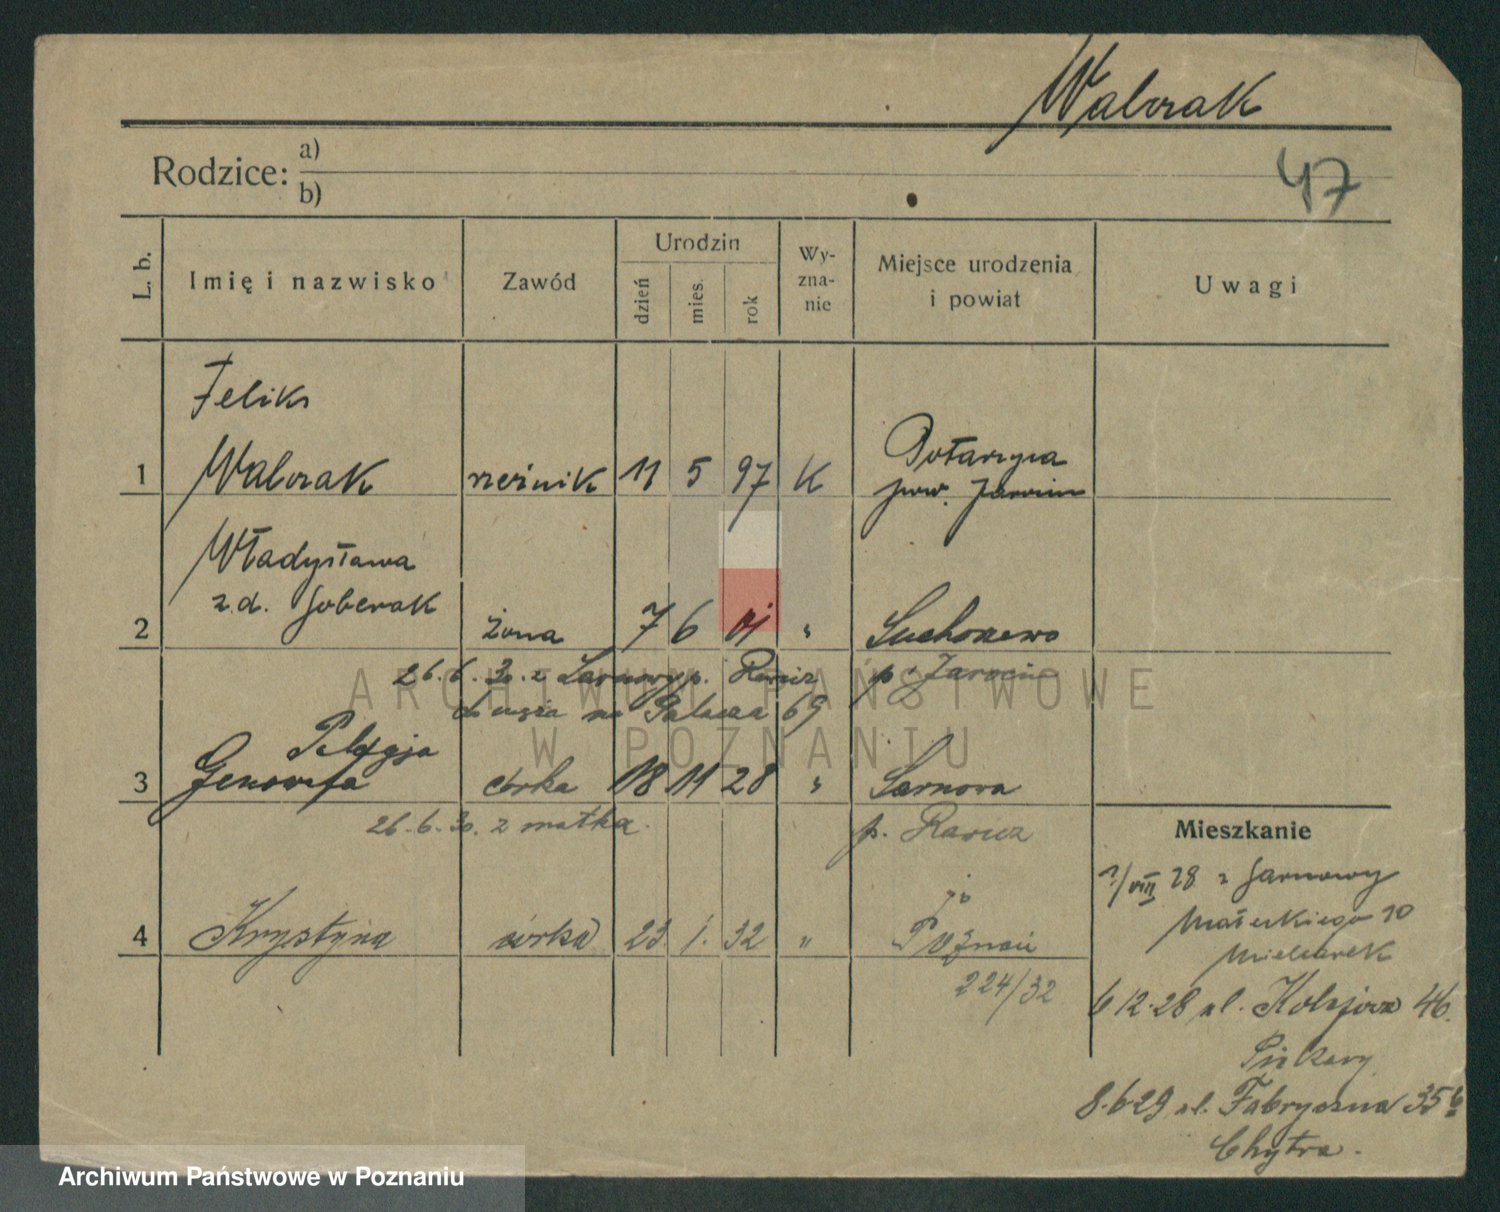 Walczak
47
Rodzice: a)
b)
L. b.
Imię i nazwisko
Zawód
Urodzin
dzień
mies.
rok
Wy-
zna-
nie
Miejsce urodzenia
i powiat
Uwagi
Feliks
1 Walczak rzeźnik 11 5 97 K Potarzyca
pow. Jarocin
Władysława
z.d. Soberak
2 żona 7 6 01 " Suchorzewo
26.6.30. z Sarnowy p. Rawicz p. Jarocin
do męża na Palacza 69
Pelagja
3 Genowefa córka 18 11 28 " Sarnowa
26.6.30. z matką. p. Rawicz
4 Krystyna córka 23. 1. 32 " Poznań
224/32
Mieszkanie
VIII 28 z Sarnowy
Małeckiego 10
Mielcarek
6 12.28 ul. 46.
Piekary
8.6.29 ul. Fabryczna 35
Chytra.
ARCHIWUM PAŃSTWOWE
W POZNANIU
Archiwum Państwowe w Poznaniu